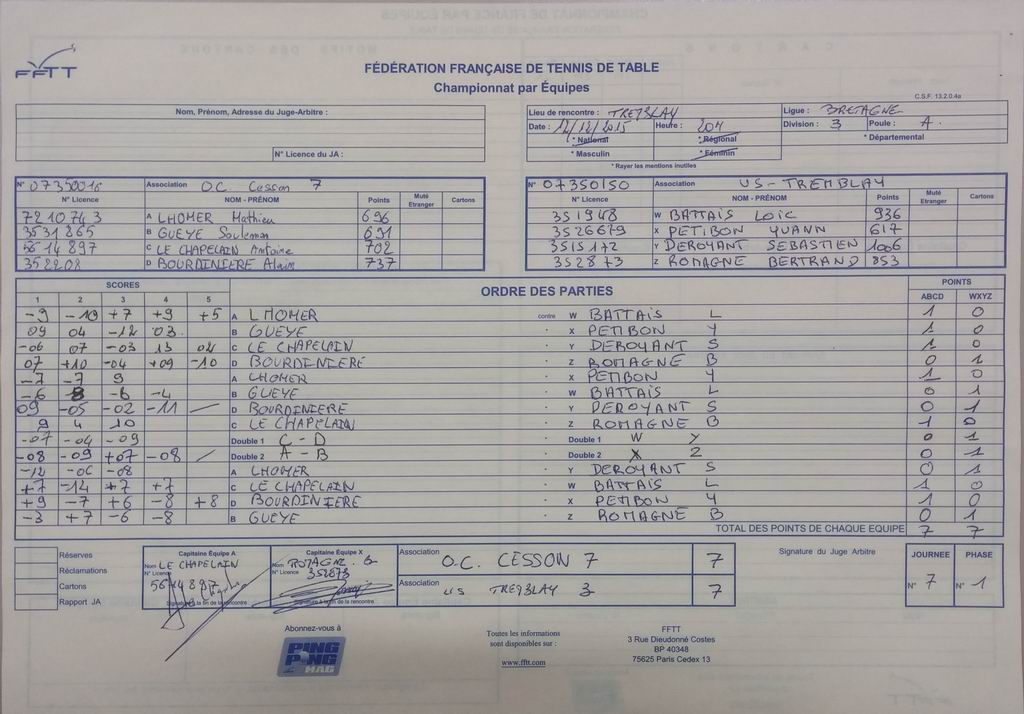 FFTT
FÉDÉRATION FRANÇAISE DE TENNIS DE TABLE
Championnat par Équipes
C.S.F. 13.2.0.4a
Nom, Prénom, Adresse du Juge-Arbitre :
N° Licence du JA :
Lieu de rencontre : TREMBLAY
Ligue : BRETAGNE
Date : 12/12/2015 Heure : 20H
Division : 3 Poule : A
* National * Régional * Départemental
* Masculin * Féminin
* Rayer les mentions inutiles
N° 07350016 Association O.C. Cesson 7
N° Licence NOM - PRÉNOM Points Muté Etranger Cartons
7210743 A LHOMER Mathieu 696
3531865 B GUEYE Souleman 691
5614897 C LE CHAPELAIN Antoine 702
352208 D BOURDINIERE Alain 737
N° 07350150 Association US-TREMBLAY
N° Licence NOM - PRÉNOM Points Muté Etranger Cartons
351948 W BATTAIS LOIC 936
3526679 X PETIBON YUANN 617
3515172 Y DEROYANT SEBASTIEN 1006
352873 Z ROMAGNE BERTRAND 853
SCORES ORDRE DES PARTIES POINTS
1 2 3 4 5 ABCD WXYZ
-9 -10 +7 +9 +5 A LHOMER contre W BATTAIS L 1 0
09 04 -12 03 B GUEYE X PETIBON Y 1 0
-06 07 -03 13 02 C LE CHAPELAIN Y DEROYANT S 1 0
07 +10 -04 +09 -10 D BOURDINIERE Z ROMAGNE B 0 1
-7 -7 9 A LHOMER X PETIBON Y 1 0
-6 8 -6 -4 B GUEYE W BATTAIS L 0 1
09 -05 -02 -11 D BOURDINIERE Y DEROYANT S 0 1
9 4 10 C LE CHAPELAIN Z ROMAGNE B 1 0
-07 -04 -09 Double 1 C - D Double 1 W Y 0 1
-08 -09 +07 -08 Double 2 A - B Double 2 X Z 0 1
-12 -06 -08 A LHOMER Y DEROYANT S 0 1
+7 -14 +7 +7 C LE CHAPELAIN W BATTAIS L 1 0
+9 -7 +6 -8 +8 D BOURDINIERE X PETIBON Y 1 0
-3 +7 -6 -8 B GUEYE Z ROMAGNE B 0 1
TOTAL DES POINTS DE CHAQUE EQUIPE 7 7
Réserves
Réclamations
Cartons
Rapport JA
Capitaine Équipe A
Nom LE CHAPELAIN
N° Licence
5614897
Signature à la fin de la rencontre
Capitaine Équipe X
Nom ROMAGNE B
N° Licence 352873
Signature à la fin de la rencontre
Association O.C. CESSON 7 7
Association US TREMBLAY 3 7
Signature du Juge Arbitre
JOURNEE PHASE
N° 7 N° 1
Abonnez-vous à
PING PONG MAG
Toutes les informations
sont disponibles sur :
www.fftt.com
FFTT
3 Rue Dieudonné Costes
BP 40348
75625 Paris Cedex 13